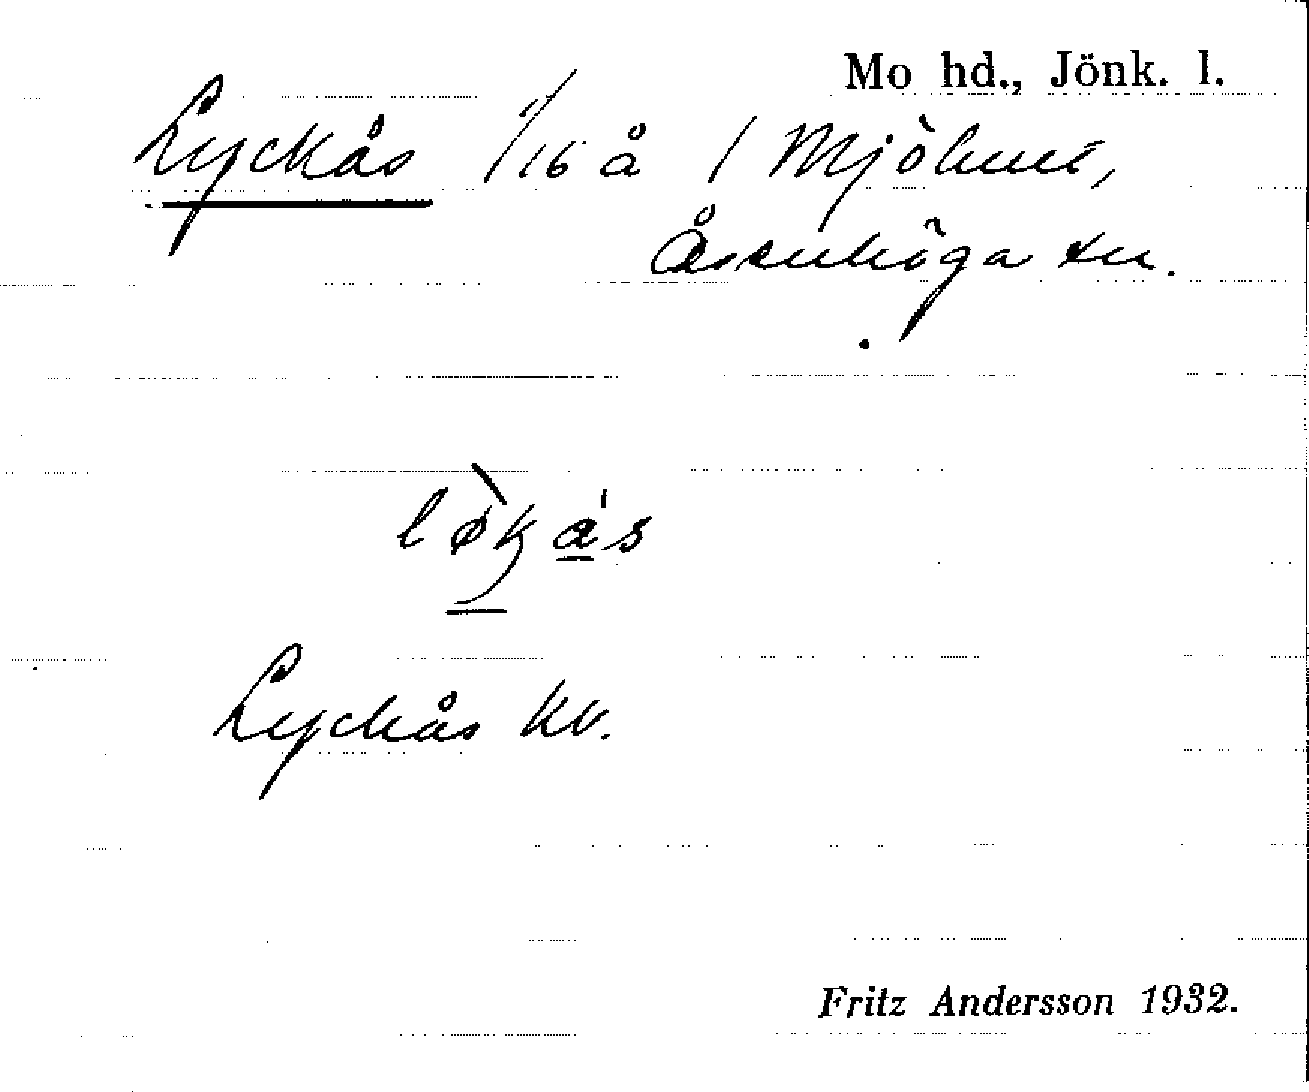 Mo hd., Jönk. l.
Lyckås 1/16 å 1 Mjöhult,
Åsenhöga sn.
Lyckås kv.
Fritz Andersson 1932.